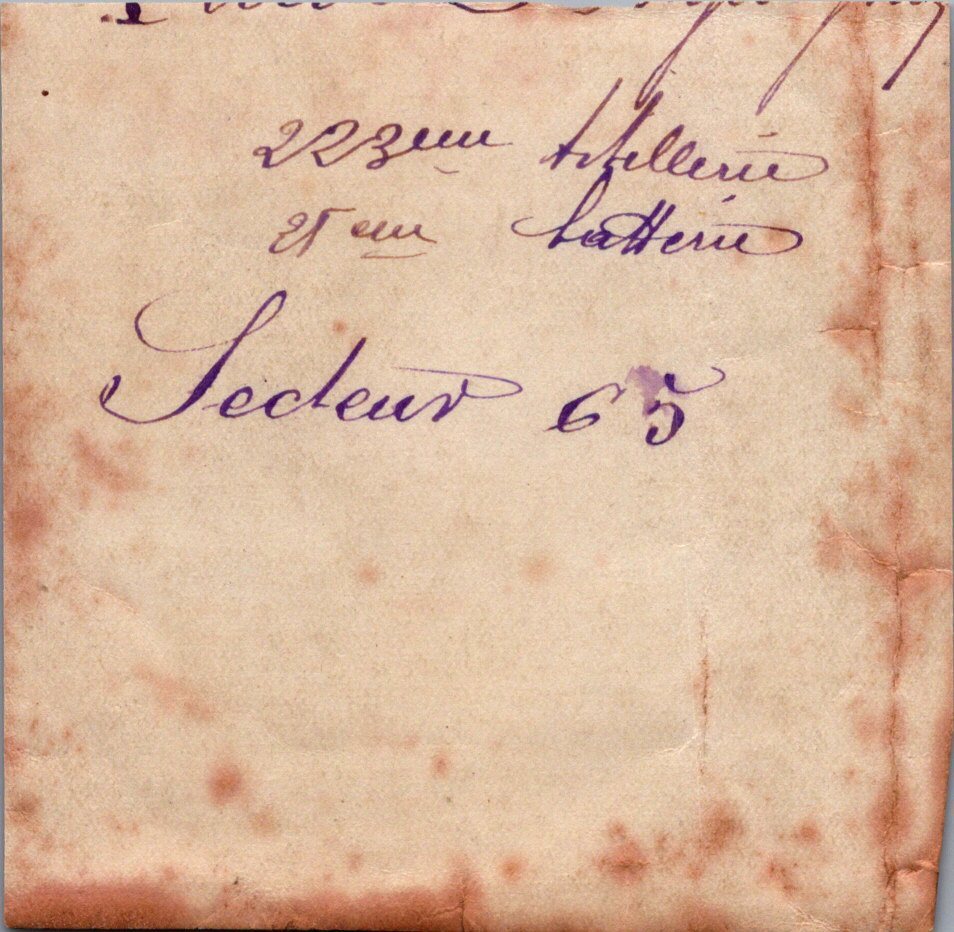 223eme Artillerie
25 eme batterie
Secteur 65